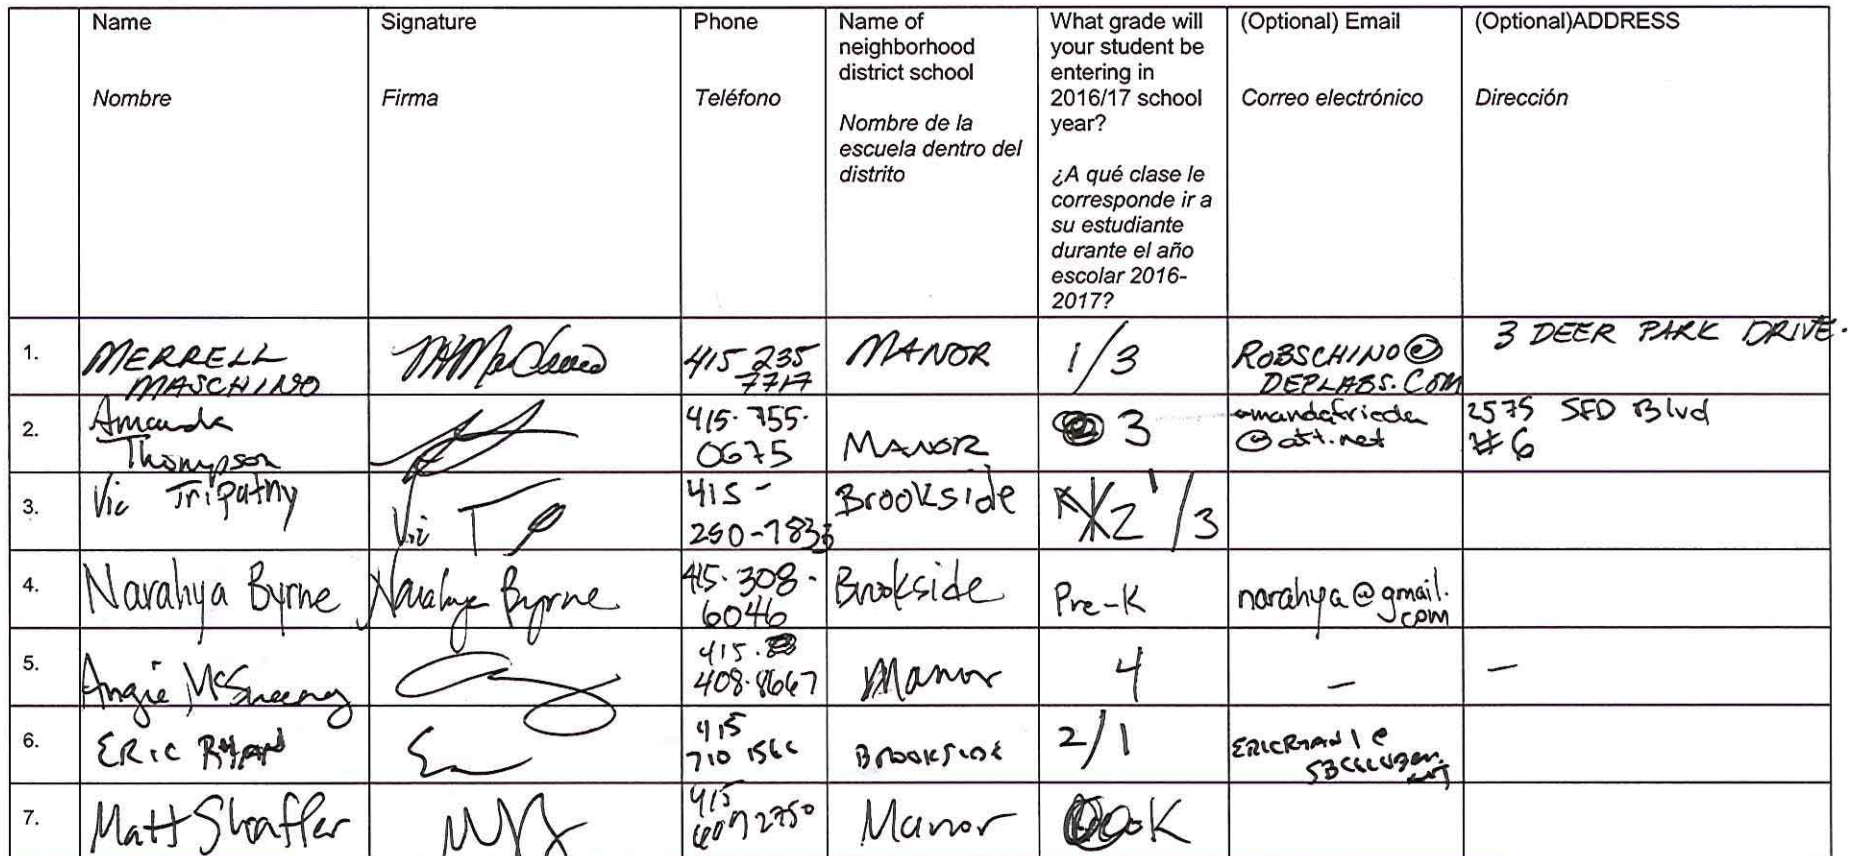 Name
Nombre
Signature
Firma
Phone
Teléfono
Name of
neighborhood
district school
Nombre de la
escuela dentro del
distrito
What grade will
your student be
entering in
2016/17 school
year?
¿A qué clase le
corresponde ir a
su estudiante
durante el año
escolar 2016-
2017?
(Optional) Email
Correo electrónico
(Optional)ADDRESS
Dirección
1.
MERRELL
MASCHINO
415 235
7717
MANOR
1/3
ROBSCHINO@
DEPLABS.COM
3 DEER PARK DRIVE.
2.
Amanda
Thompson
415-755-
0675
MANOR
3
amandafrieda
@att.net
2575 SFD Blvd
#6
3.
Vic Tripathy
Vic T
415-
250-7833
Brookside
1/3
4.
Narahya Byrne
Narahya Byrne
415-308-
6046
Brookside
Pre-K
narahya@gmail.
com
5.
Angie McSweeney
415.
408-8667
Manor
4
—
—
6.
ERIC RYAN
415
710 1566
BROOKSIDE
2/1
ERICRYAN1@
7.
Matt Shaffer
415
2750
Manor
K